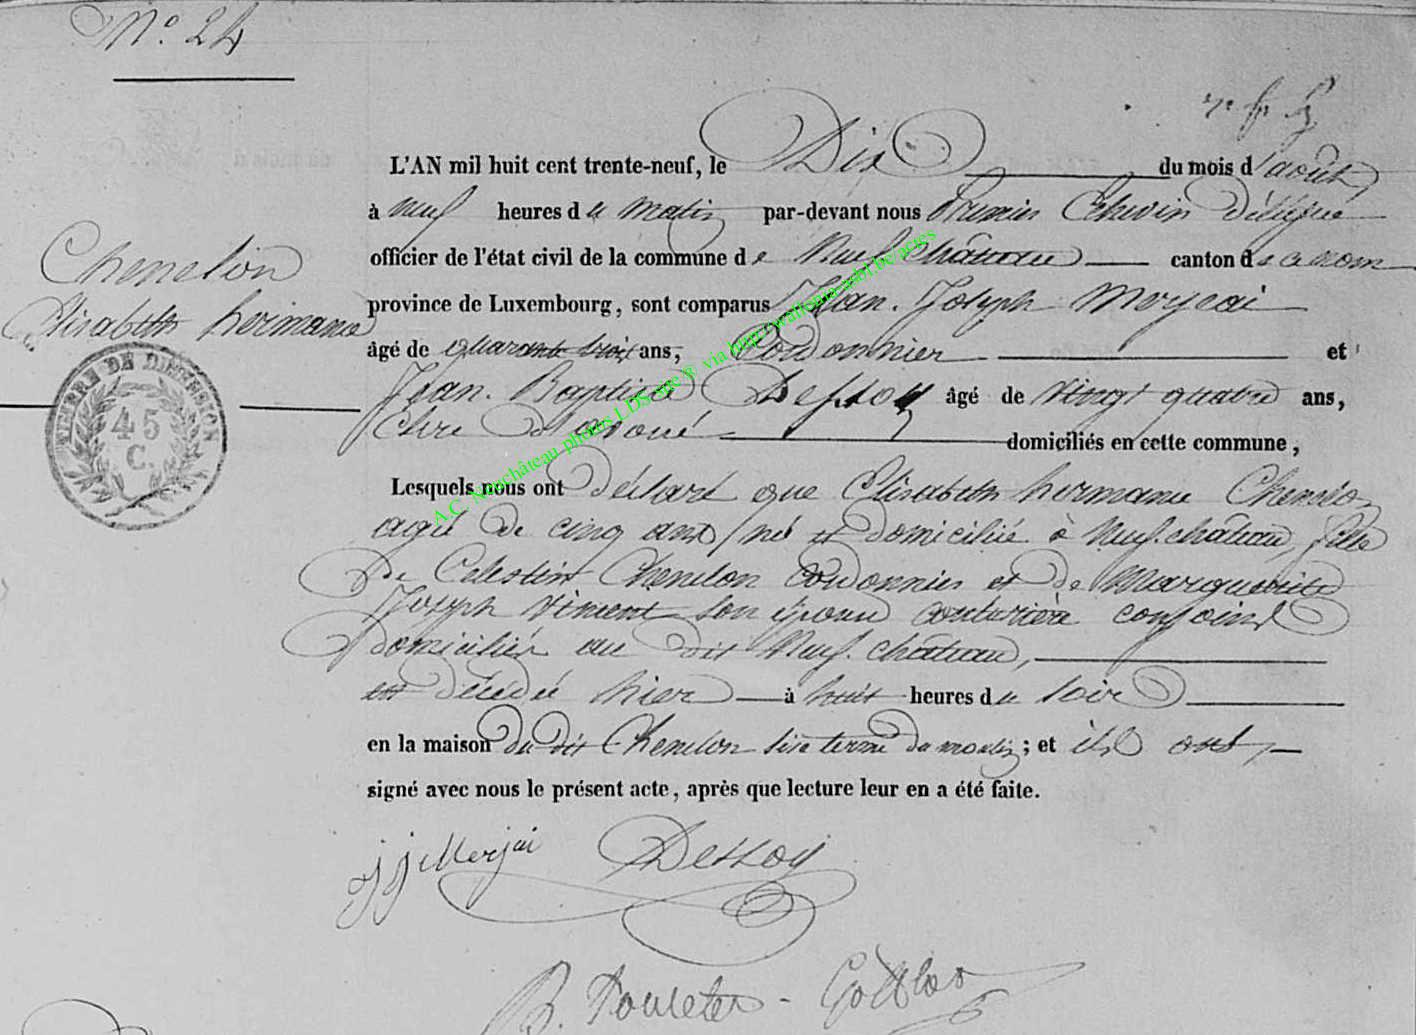 N.º 24
L'AN mil huit cent trente-neuf, le Dix du mois d'août
à neuf heures du matin par-devant nous Premier Echevin délégué
officier de l'état civil de la commune de Neufchâteau canton de ce nom
province de Luxembourg, sont comparus Jean. Joseph Merjeai
Chenelon
Elisabeth hermance
âgé de quarante trois ans, Cordonnier et
Jean. Baptiste Dessoy âgé de vingt quatre ans,
Clerc d'avoué domiciliés en cette commune,
TIMBRE DE DIMENSION
45
C.
Lesquels nous ont déclaré que Elisabeth hermance Chenelon
agée de cinq ans, née et domiciliée à Neufchâteau, fille
de Celestin Chenelon cordonnier et de Marguerite
Joseph Viment son épouse couturière conjoints
domiciliés au dit Neufchâteau,
est décédée hier à huit heures du soir
en la maison du dit Chenelon sise terme du moulin; et ils ont
signé avec nous le présent acte, après que lecture leur en a été faite.
JJ Merjai Dessoy
B. Poncelet - Gofflot
A.C. Neufchâteau photos LDS site ® via http://wallonia-asbl.be/actes